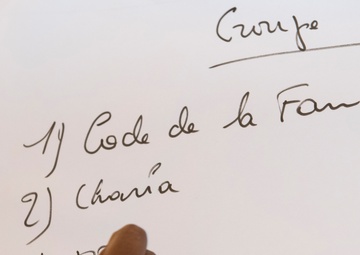 Groupe
1) Code de la Fam
2) Charia